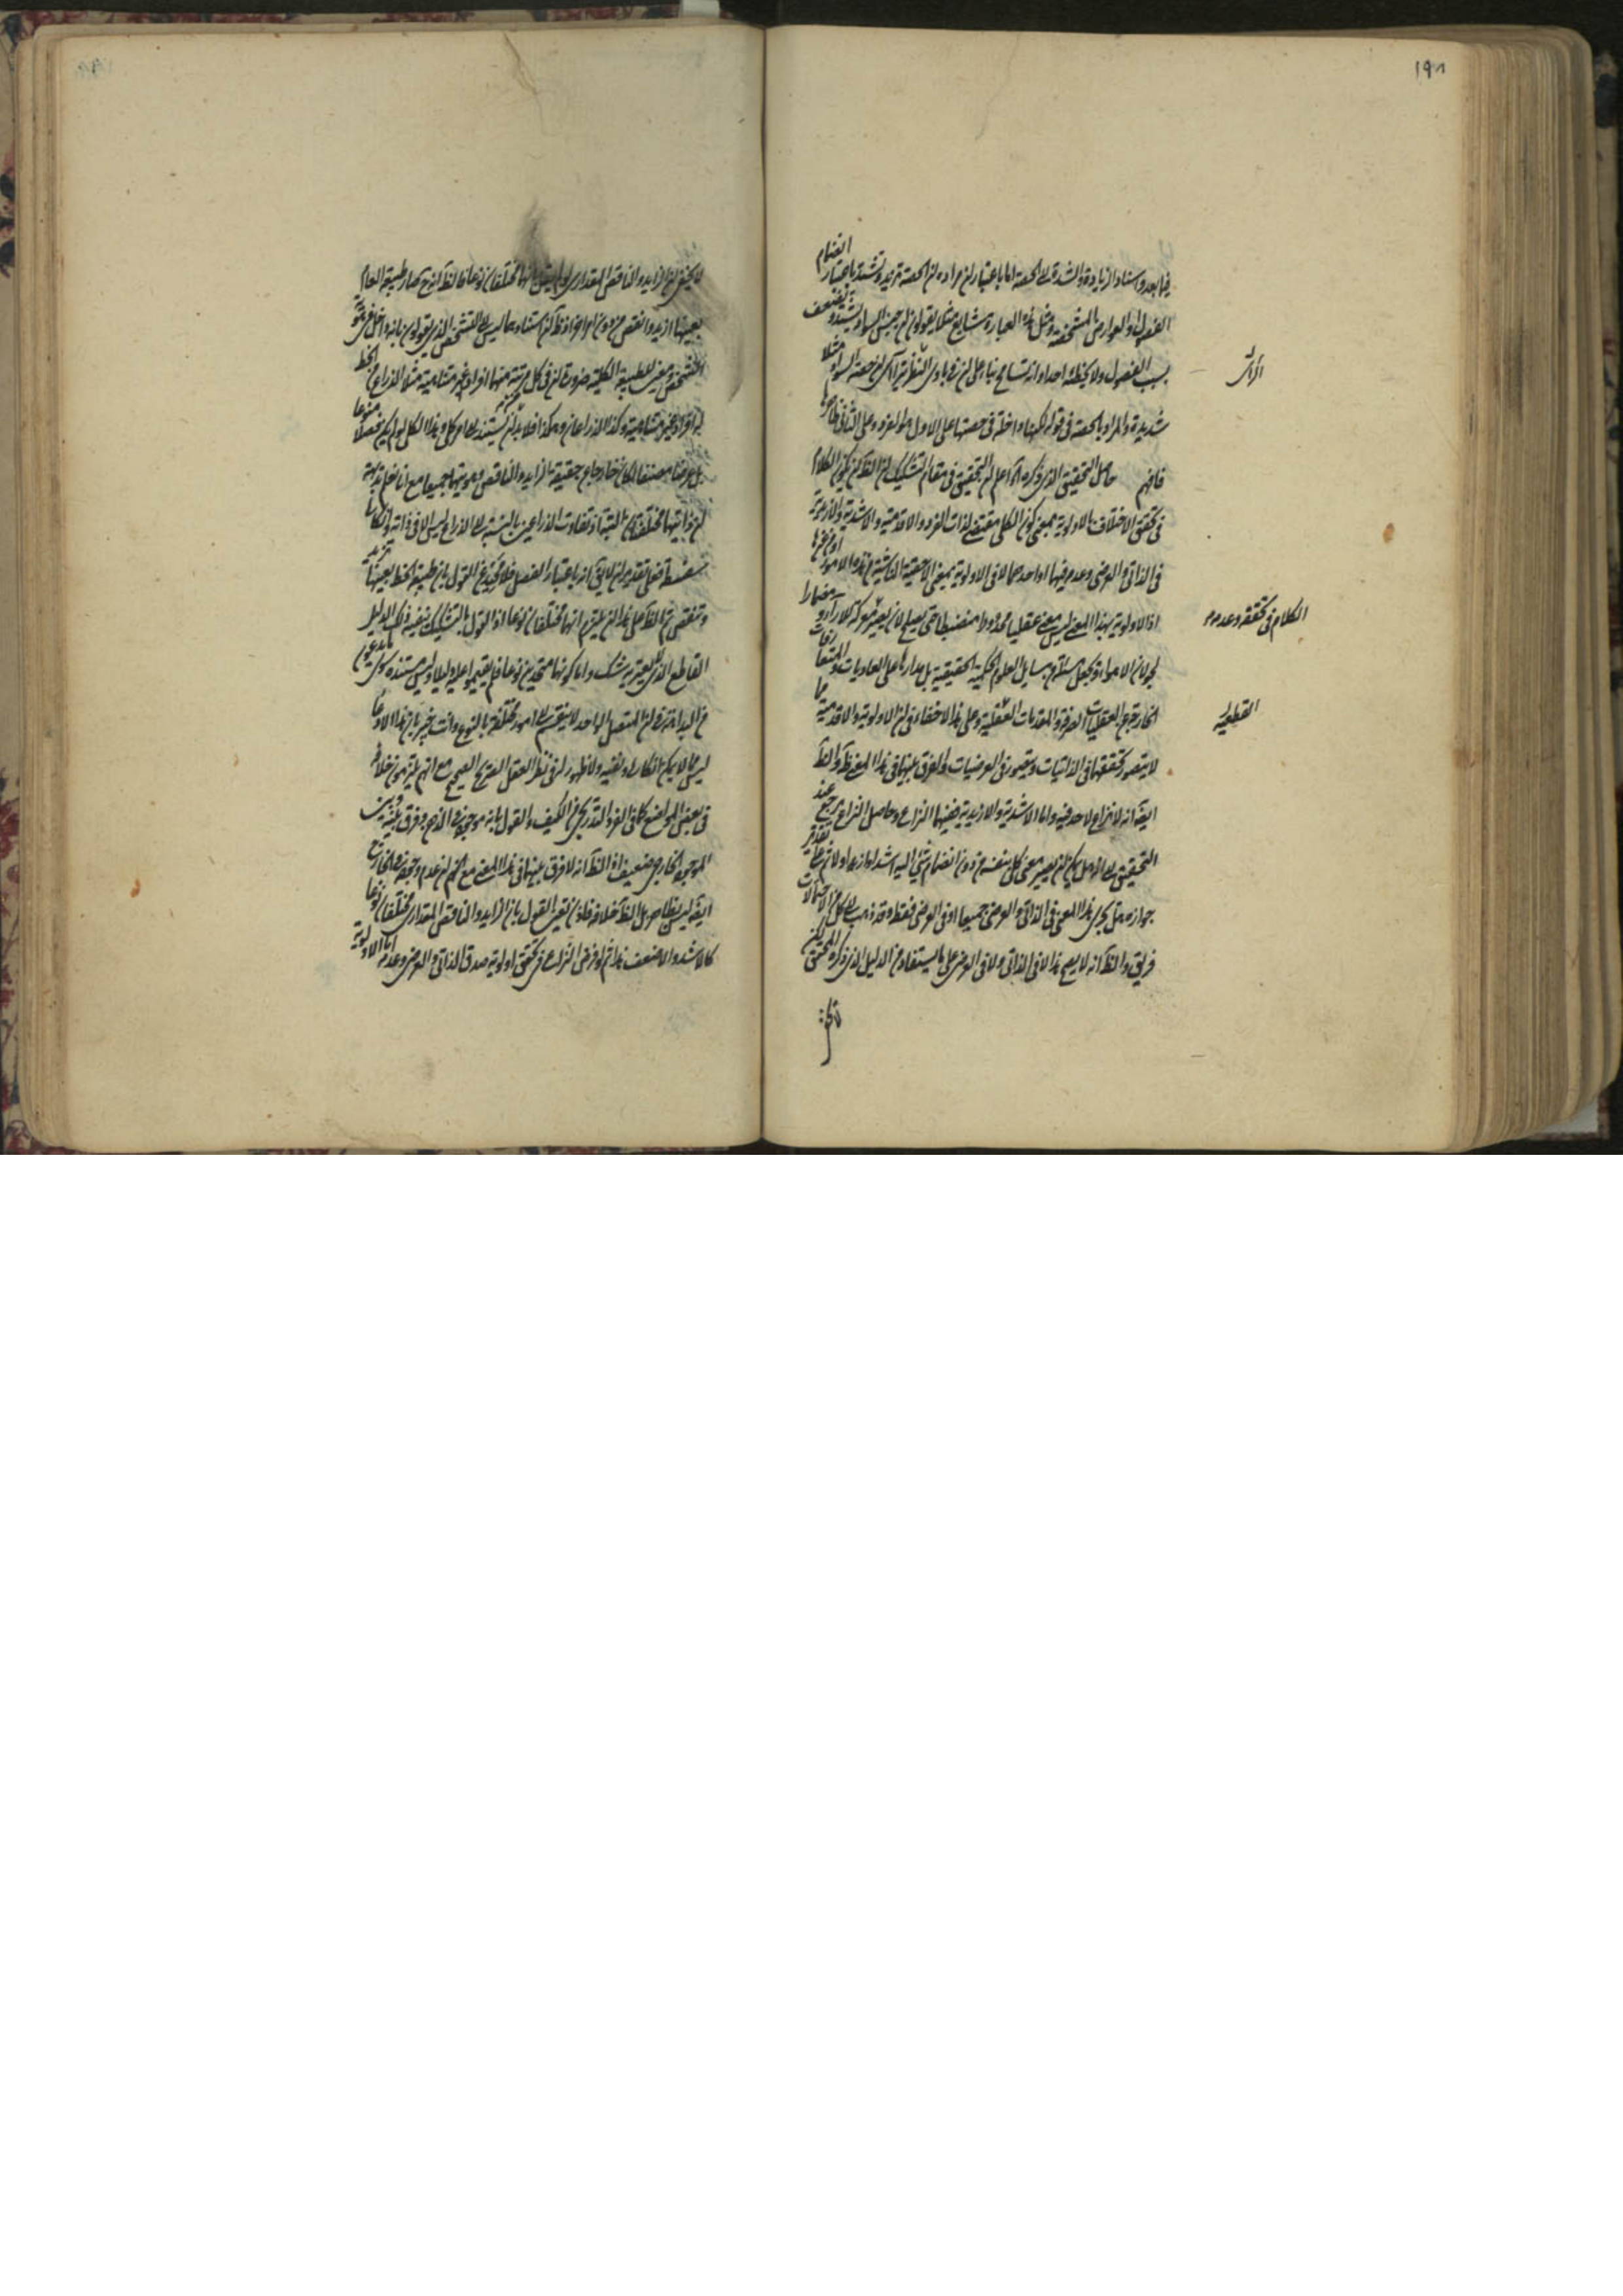 ١٩٨
فيما بعد واسناد الزيادة والشدة الى الحصة اما باعتبار ان مراده ان الحصة تزيد وتشتد باعتبار انضمام
الفصول او العوارض المشخصة ومثل هذه العبارة شايع مثلا يقولون ان جنس السواد يشتد ويضعف
بسبب الفصول ولا يخطئه احد او انه تسامح بناء على ان في بادى النظر يترآى ان حصة السواد مثلا
شديدة والمراد بالحصة في قوله لكنها داخلة في حصتها على الاول هو الفرد وعلى الثاني ظاهرها
فافهم حاصل التحقيق الذي ذكره اعلم ان التحقيق في مقام التشكيك ان الظ ان يكون الكلام
في تحقق الاختلاف بالاولوية بمعنى كون الكلى مقتضى لذات الفرد والاقدمية والاشدية والازيدية
في الذاتي والعرضي وعدمه فيهما او احدهما لا في الاولوية بمعنى الاحقية الناشية من هذه الامور او من غيرها
اذ الاولوية بهذا المعنى ليس معنى عقليا محدودا منضبطا حتى يصلح لان يصير معركة للآراء ومضمارا
لجولان الاهواء ويجعل مسئلة من مسايل العلوم الحكمية الحقيقية بل مدارها على العاديات والمتعارفات
الخارجة عن العقليات الصرفة والمقدمات العقلية وعلى هذا لا خفاء في ان الاولوية والاقدمية مما
لا يتصور تحققهما في الذاتيات ويتصور في العرضيات والفرق بينهما في هذا المعنى ظ والظ
ايضا انه لا نزاع لاحد فيه واما الاشدية والازيدية ففيهما النزاع وحاصل النزاع يرجع عند
التحقيق الى انه هل يمكن ان يصير معنى كلي بنفسه من دون انضمام شيء اليه اشد او ازيد اولا ثم على تقدير
جوازه هل يجرى هذا المعنى في الذاتي والعرضي جميعا او في العرضي فقط وقد ذهب الى كل من الاحتمالات
فريق والظ انه لا يصح هذا لا في الذاتي ولا في العرضي على ما يستفاد من الدليل الذي ذكره المحقق لكن
الكلام في تحققه وعدمه
القطعية
لا يخفى ان الزايد والناقص المقداري لو لم يقل بانهما مختلفان نوعا فالظ انه ح صار طبيعة العام
بعينها ازيد وانقص من دون امر آخر اذ ظ ان استناده ليس الى التشخص الذي يقولون بانه داخل في هوية
الشخص ومعين للطبيعة الكلية ضرورة ان في كل مرتبة منها افراد غير متناهية مثلا الذراع من الخط
له افراد غير متناهية وكذا الذراعان وهكذا فلا بد ان يستند الى امر كلي وهذا الكلى لو لم يكن فصلا منوعا
بل عرضا مصنفا لكان خارجا عن حقيقة الزايد والناقص وهويتهما جميعا مع انا نعلم بديهة
ان ذاتيهما مختلفتان البتة اذ تفاوت الذراعين بالنسبة الى الذراع ليس الا في ذاته وانكارها
سفسطة فعلى تقدير ان لا يق انه باعتبار الفصل فلا محيد عن القول بان طبيعة الخط بعينها تزيد
وتنقص ثم الظ على هذا ان يلتزم انهما مختلفان نوعا اذ القول بالتشكيك ينفيه ذلك الدليل
القاطع الذي لا يعتريه شك واما كونهما متحدين نوعا فلم يقيموا عليه دليلا وليس مستنده سوى ما يدعون
من البداهة في ان المتصل الواحد لا ينقسم الى امور مختلفة بالنوع وانت خبير بان هذا الادعاء
ليس مما لا يمكن انكاره ونفيه ولا ظهور له في نظر العقل الصريح الصحيح مع انهم يلتزمون خلافه
في بعض المواضع كما في الفرد التدريجي من الكيف والقول بانه موجود في الذهن وفرق بينه وبين
الموجود الخارجي ضعيف اذ الظ انه لا فرق بينهما في هذا المعنى مع الحكم بان عدم وجوده في الخارج
ايضا ليس بظاهر بل الظ خلافه فاذن تعين القول بان الزايد والناقص المقداري مختلفان نوعا
كالاشد والاضعف هذا ثم لو فرض النزاع في تحقق اولوية صدق الذاتي والعرضي وعدمه اما الاولوية